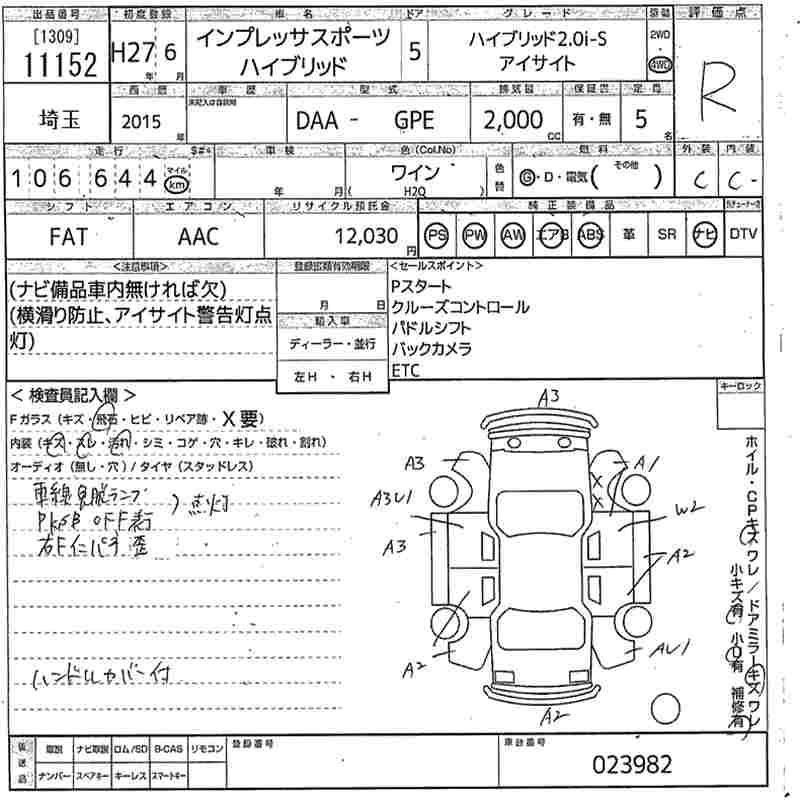 出品番号 初度登録 車名 ドア グレード 駆動 評価点
[1309] 11152 H27年 6月 インプレッサスポーツ ハイブリッド 5 ハイブリッド2.0i-S アイサイト 2WD・4WD R
埼玉 西暦 2015年 車歴 未記入は自家用 型式 DAA - GPE 排気量 2,000cc 保証書 有・無 定員 5名
走行 $#* 車検 色(Col.No) 燃料 外装 内装
106,644 マイル km 年 月 ワイン ( H2Q ) 色替 G・D・電気( その他 ) C C-
シフト エアコン リサイクル預託金 純正装備品
FAT AAC 12,030円 PS PW AW エアB ABS 革 SR ナビ DTV
<注意事項>
(ナビ備品車内無ければ欠)
(横滑り防止、アイサイト警告灯点
灯)
登録書類有効期限
月 日
輸入車
ディーラー・並行
左H ・ 右H
<セールスポイント>
Pスタート
クルーズコントロール
パドルシフト
バックカメラ
ETC
キーロック
< 検査員記入欄 >
Fガラス (キズ・飛石・ヒビ・リペア跡・X要)
内装 (キズ・スレ・汚れ・シミ・コゲ・穴・キレ・破れ・割れ)
オーディオ (無し・穴) / タイヤ (スタッドレス)
車線逸脱ランプ
PKSB OFF表 ) 点灯
右Fインパネ歪
ハンドルカバー付
A3
A3 A1
A3U1 X X
W2
A3 A2
A2 AU1
A2
ホイル・CPキズワレ / ドアミラーキズワレ
小キズ有 小U有 補修有
後送品 取説 ナビ取説 ロム/SD B-CAS リモコン
ナンバー スペアキー キーレス スマートキー
登録番号
車台番号
023982